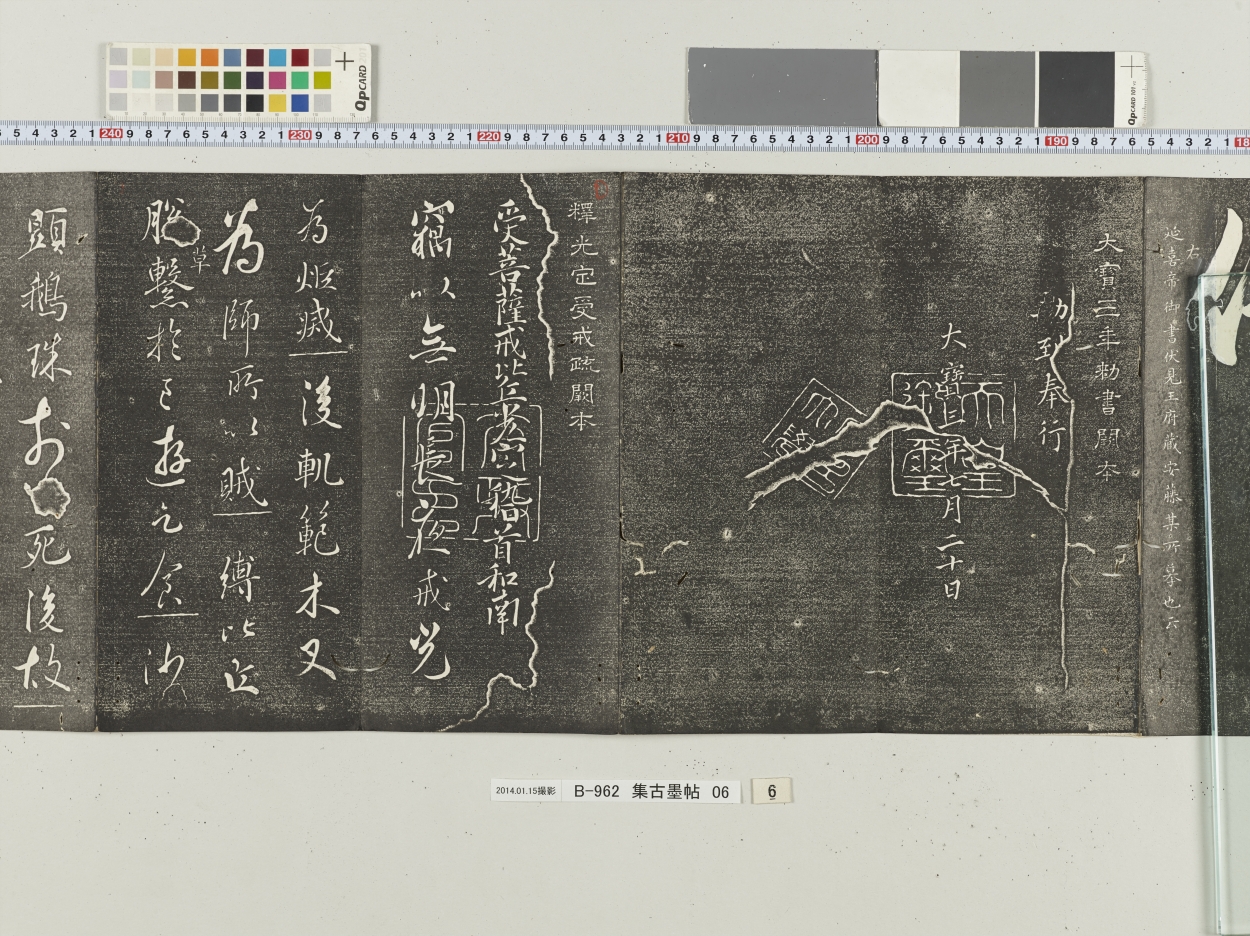 右
延喜帝御書伏見王府蔵安藤某所摹也六
大寶三年勅書闕本
勅到奉行
大寶三年七月二十日
天皇
釋光定受戒疏闕本
受菩薩戒比丘光定稽首和南
竊以無明長夜戒光
為炬滅後軌範木叉
為師所以賊縛比丘
脱草繫於王遊乞食沙
顕鵝珠於死後故
2014.01.15撮影 B-962 集古墨帖 06 6
QPCARD
QPCARD 101
5 4 3 2 1 240 9 8 7 6 5 4 3 2 1 230 9 8 7 6 5 4 3 2 1 220 9 8 7 6 5 4 3 2 1 210 9 8 7 6 5 4 3 2 1 200 9 8 7 6 5 4 3 2 1 190 9 8 7 6 5 4 3 2 1